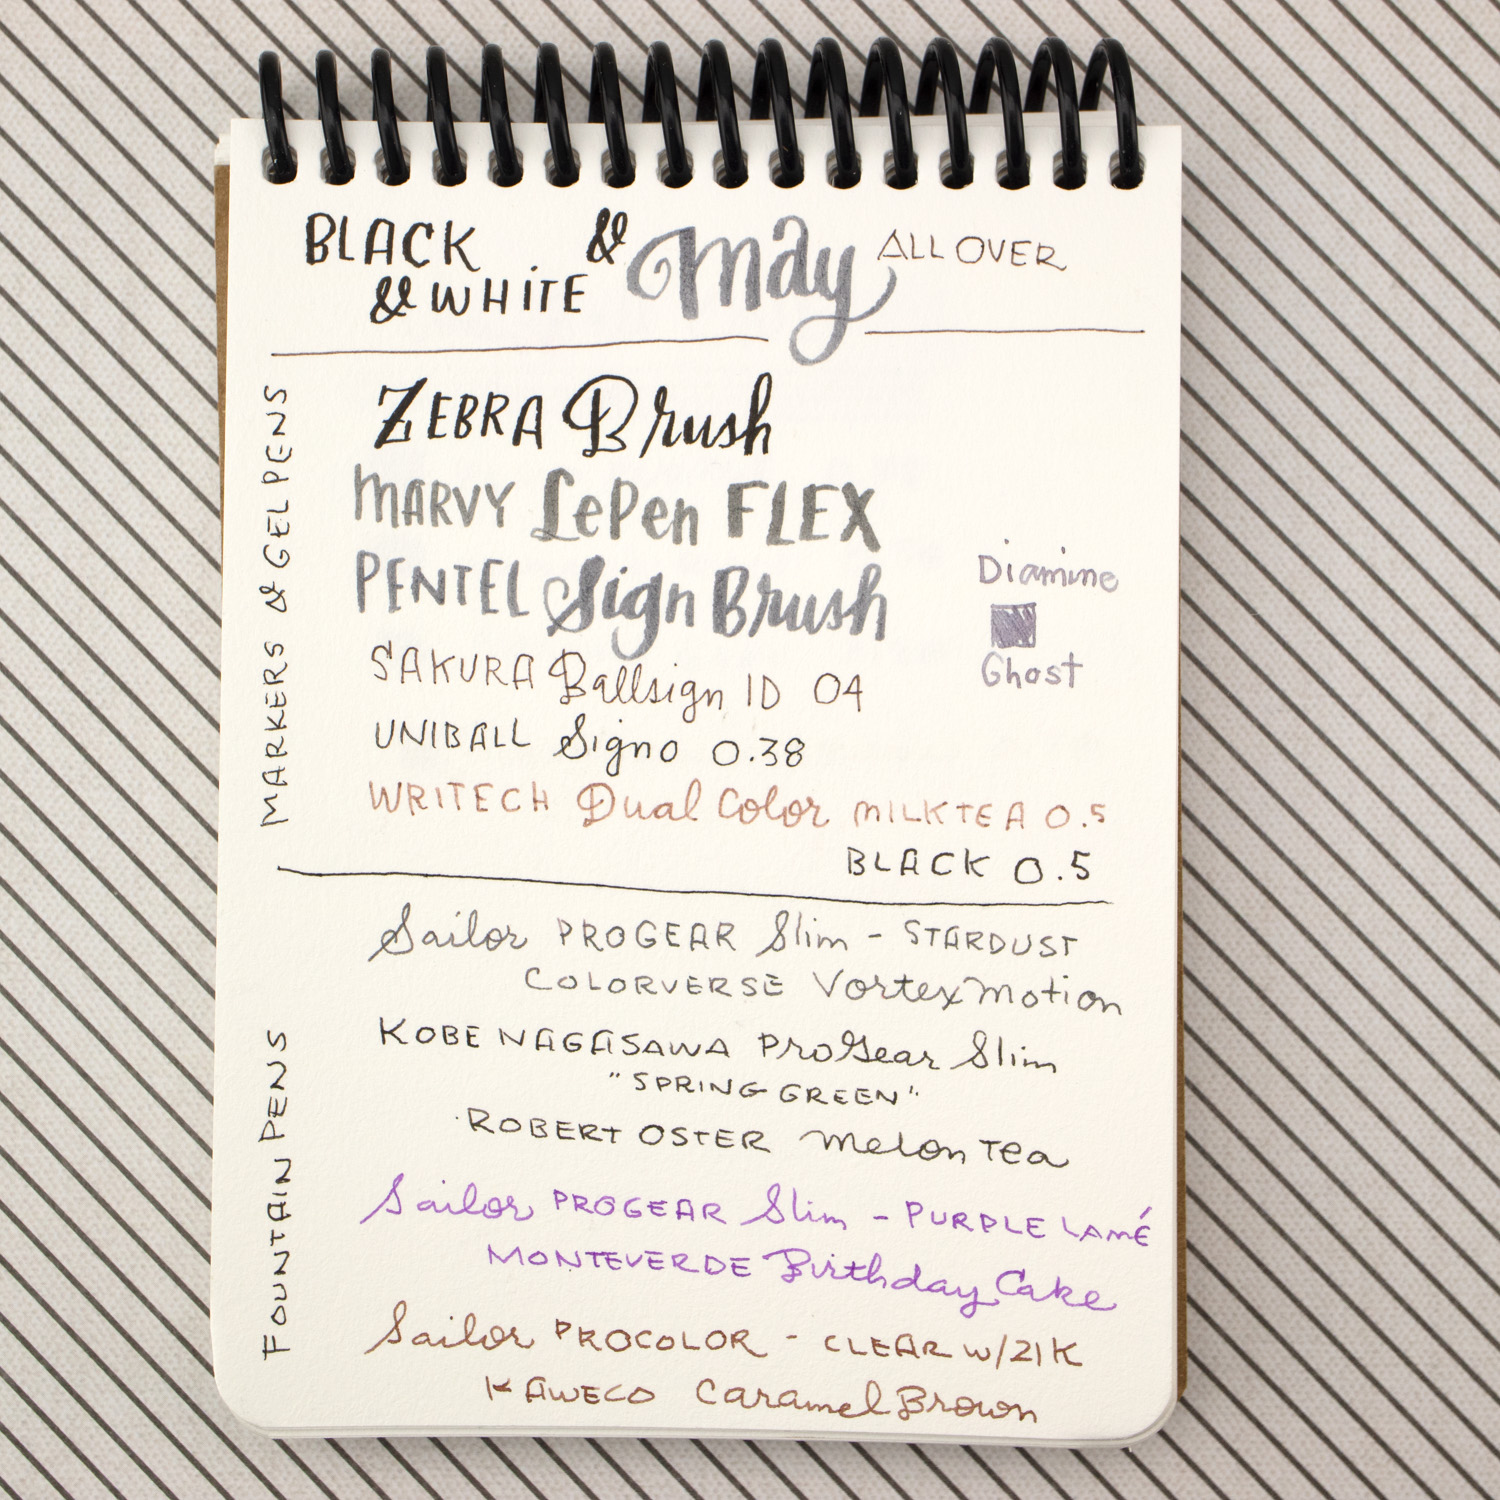 BLACK & May ALL OVER
& WHITE
MARKERS & GEL PENS
ZEBRA Brush
MARVY LePen FLEX
PENTEL Sign Brush
Diamine
Ghost
SAKURA Ballsign ID 04
UNIBALL Signo 0.38
WRITECH Dual Color MILKTEA 0.5
BLACK 0.5
FOUNTAIN PENS
Sailor PROGEAR Slim - STARDUST
COLORVERSE Vortex Motion
KOBE NAGASAWA ProGear Slim
"SPRING GREEN"
ROBERT OSTER Melon Tea
Sailor PROGEAR Slim - PURPLE LAMÉ
MONTEVERDE Birthday Cake
Sailor PROCOLOR - CLEAR W/21K
KAWECO Caramel Brown